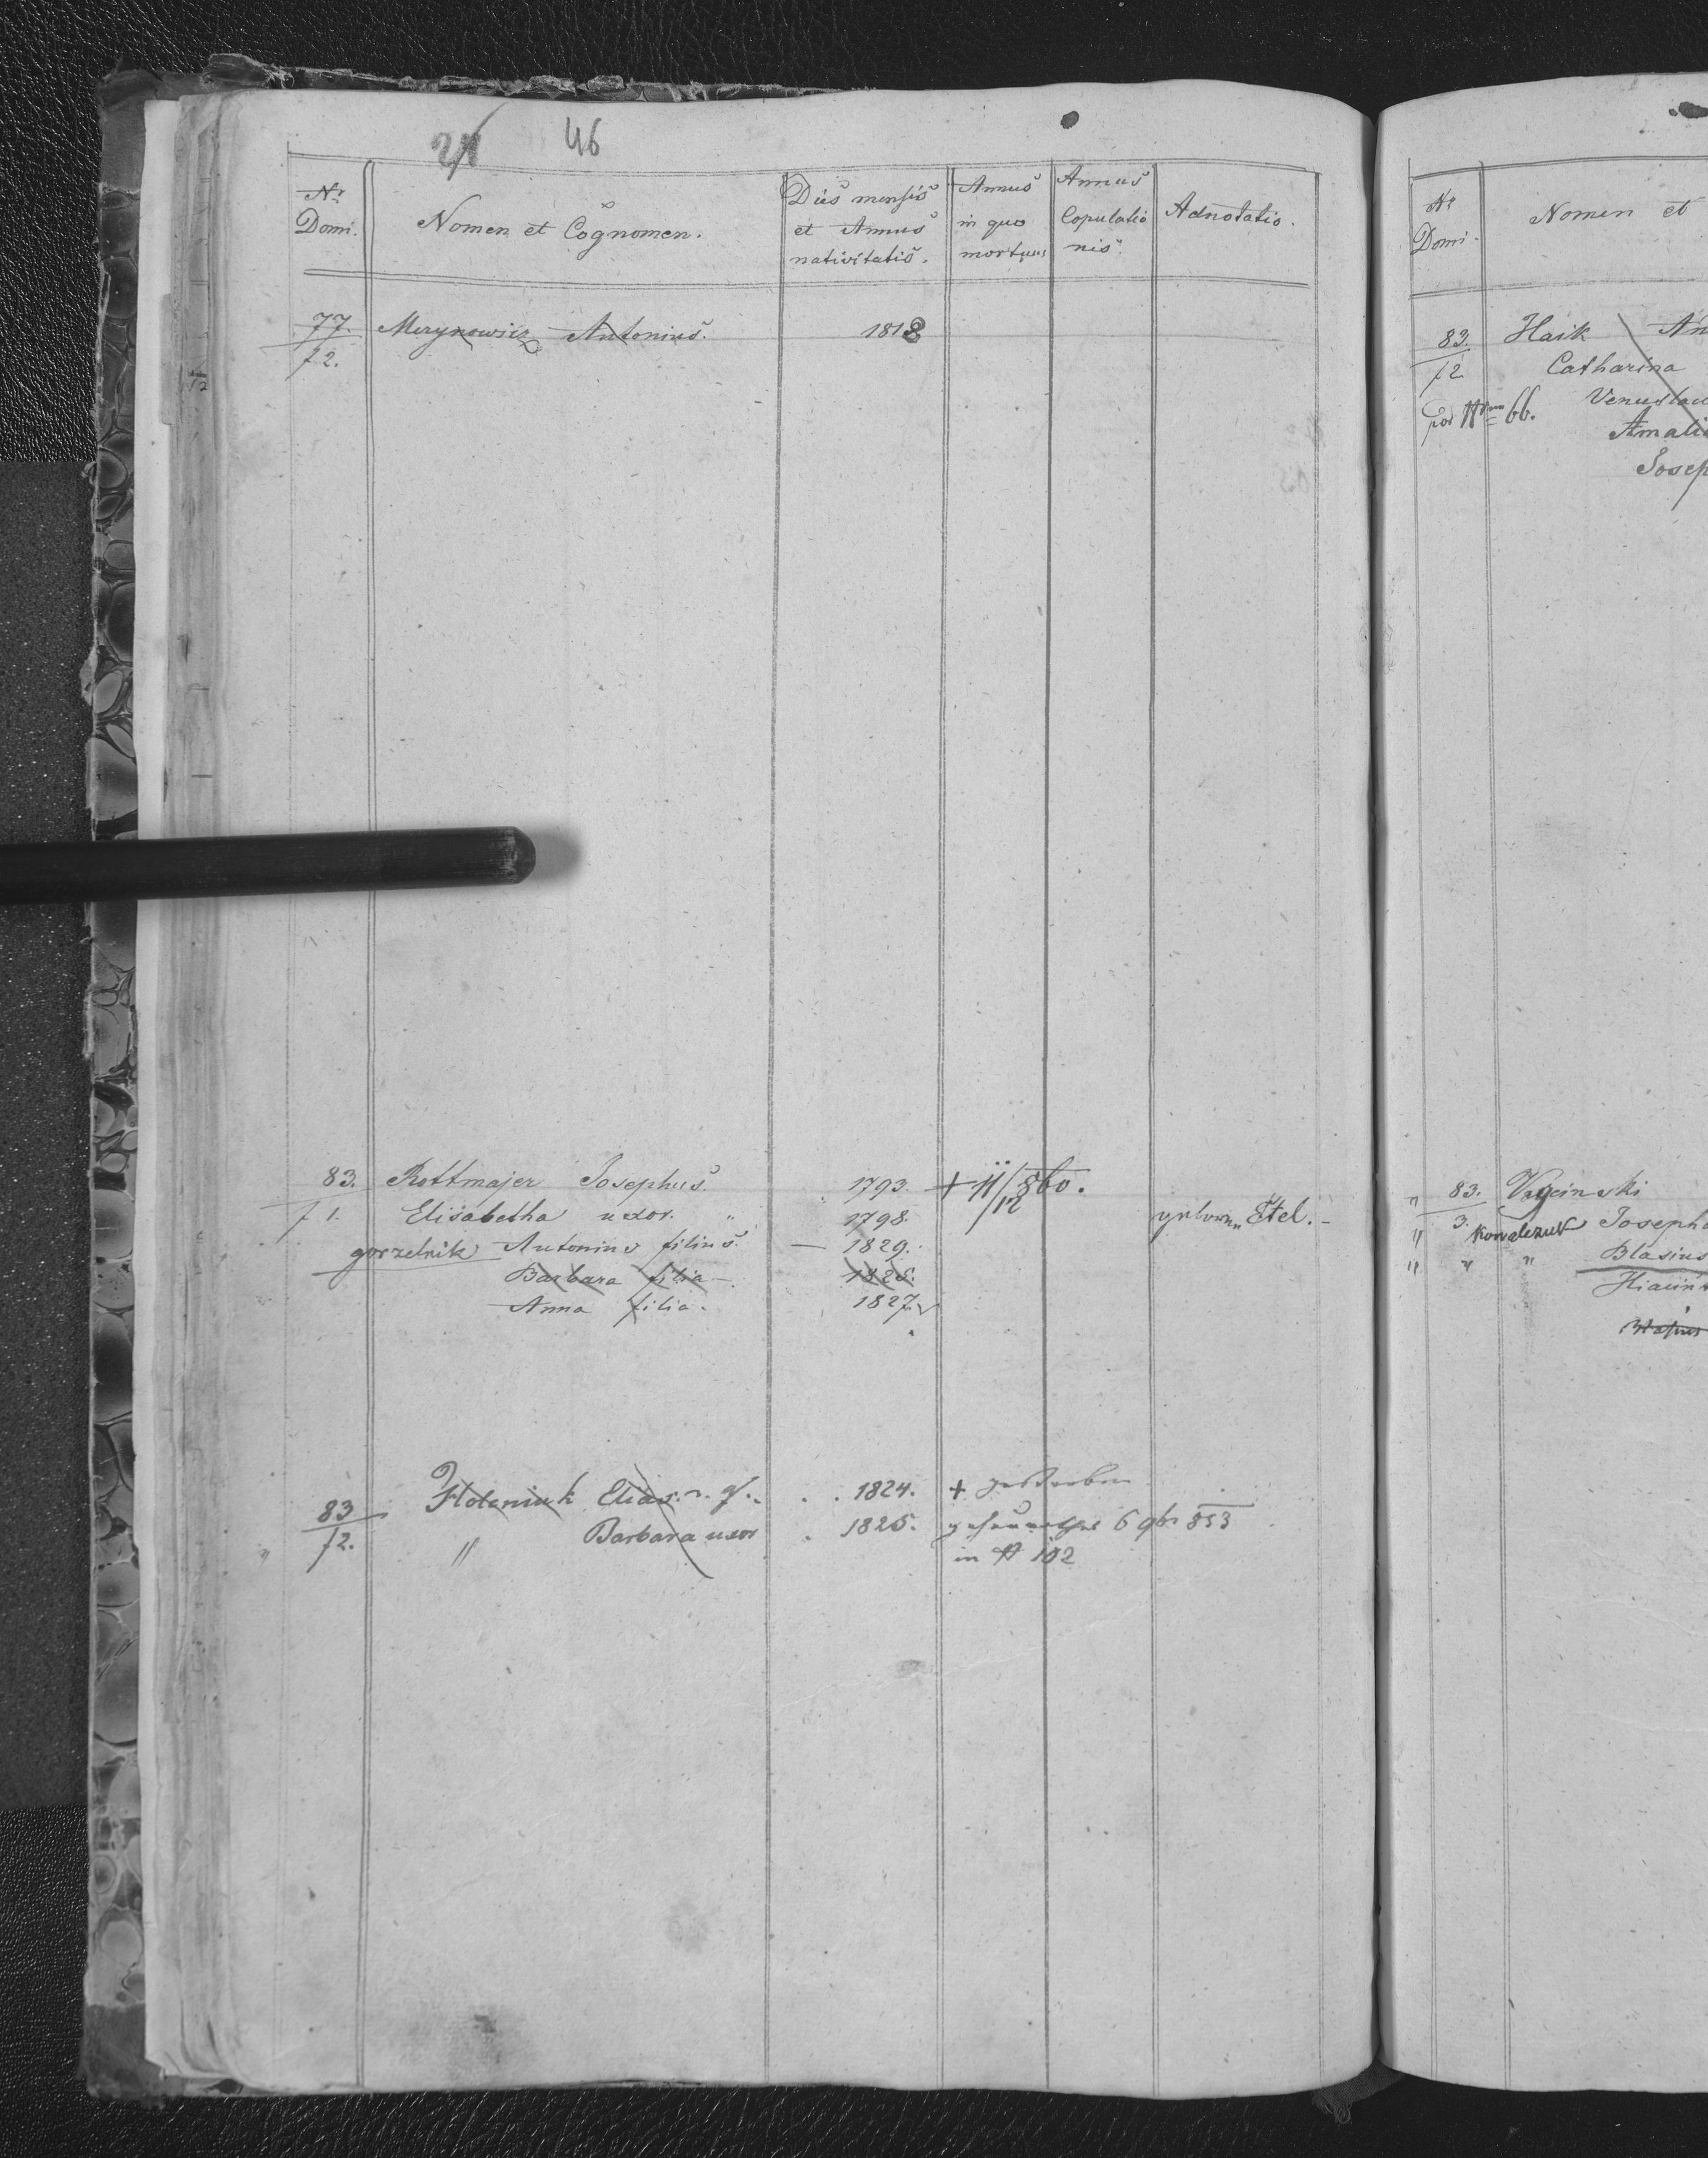 46
Nr Domi.
Nomen et Cognomen.
Dies mensis et Annus nativitatis.
Annus in quo mortuus
Annus Copulationis.
Adnotatio.
77. Merynowicz Antonius. 1818
/2.
83. Rottmajer Josephus. 1793. + 11/12 860.
/1. Elisabetha uxor. " 1798. geborne Etel. -
gorzelnik Antonius filius. — 1829.
Barbara filia - 1825.
Anna filia. 1827.
83 Holeniuk Elias r. g. . . 1824. + gestorben
/2. " Barbara uxor . 1825. 6 9br 853
in N 102
Nr Domi.
Nomen et
83. Haik An
/2 Catharina
por Nrum 66. Venuslau
Amali
Josep
" 83. Wgcinski
" 3. Kowalczuk Joseph
" " " Blasius
Hiacin